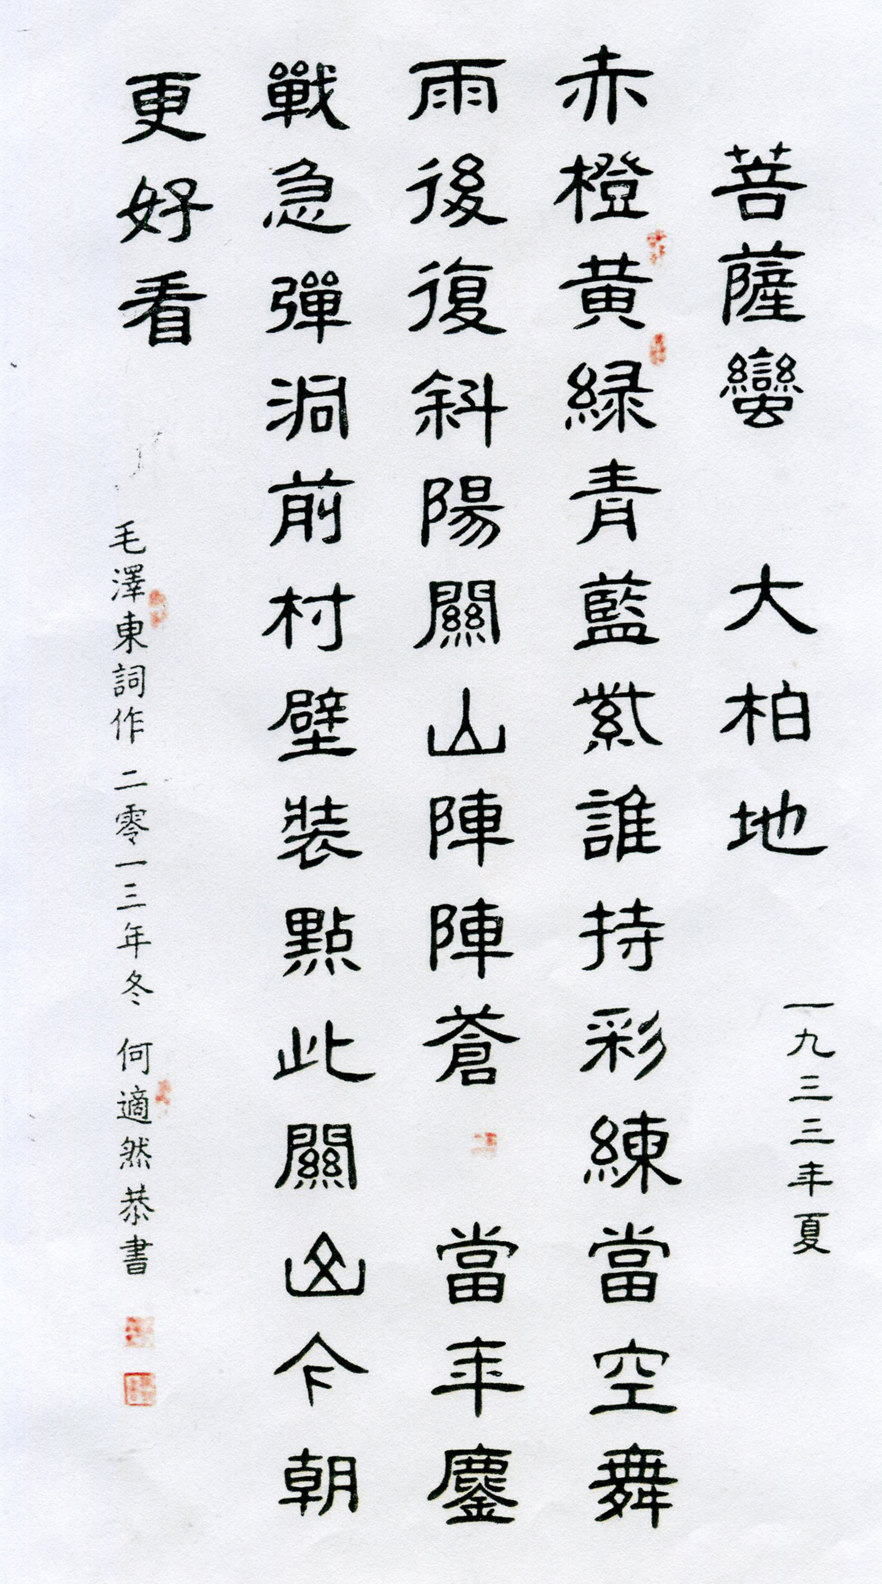 菩薩蠻 大柏地 一九三三年夏
赤橙黃緑青藍紫誰持彩練當空舞
雨後復斜陽關山陣陣蒼 當年鏖
戰急彈洞前村壁裝點此關山今朝
更好看
毛澤東詞作 二零一三年冬 何適然恭書